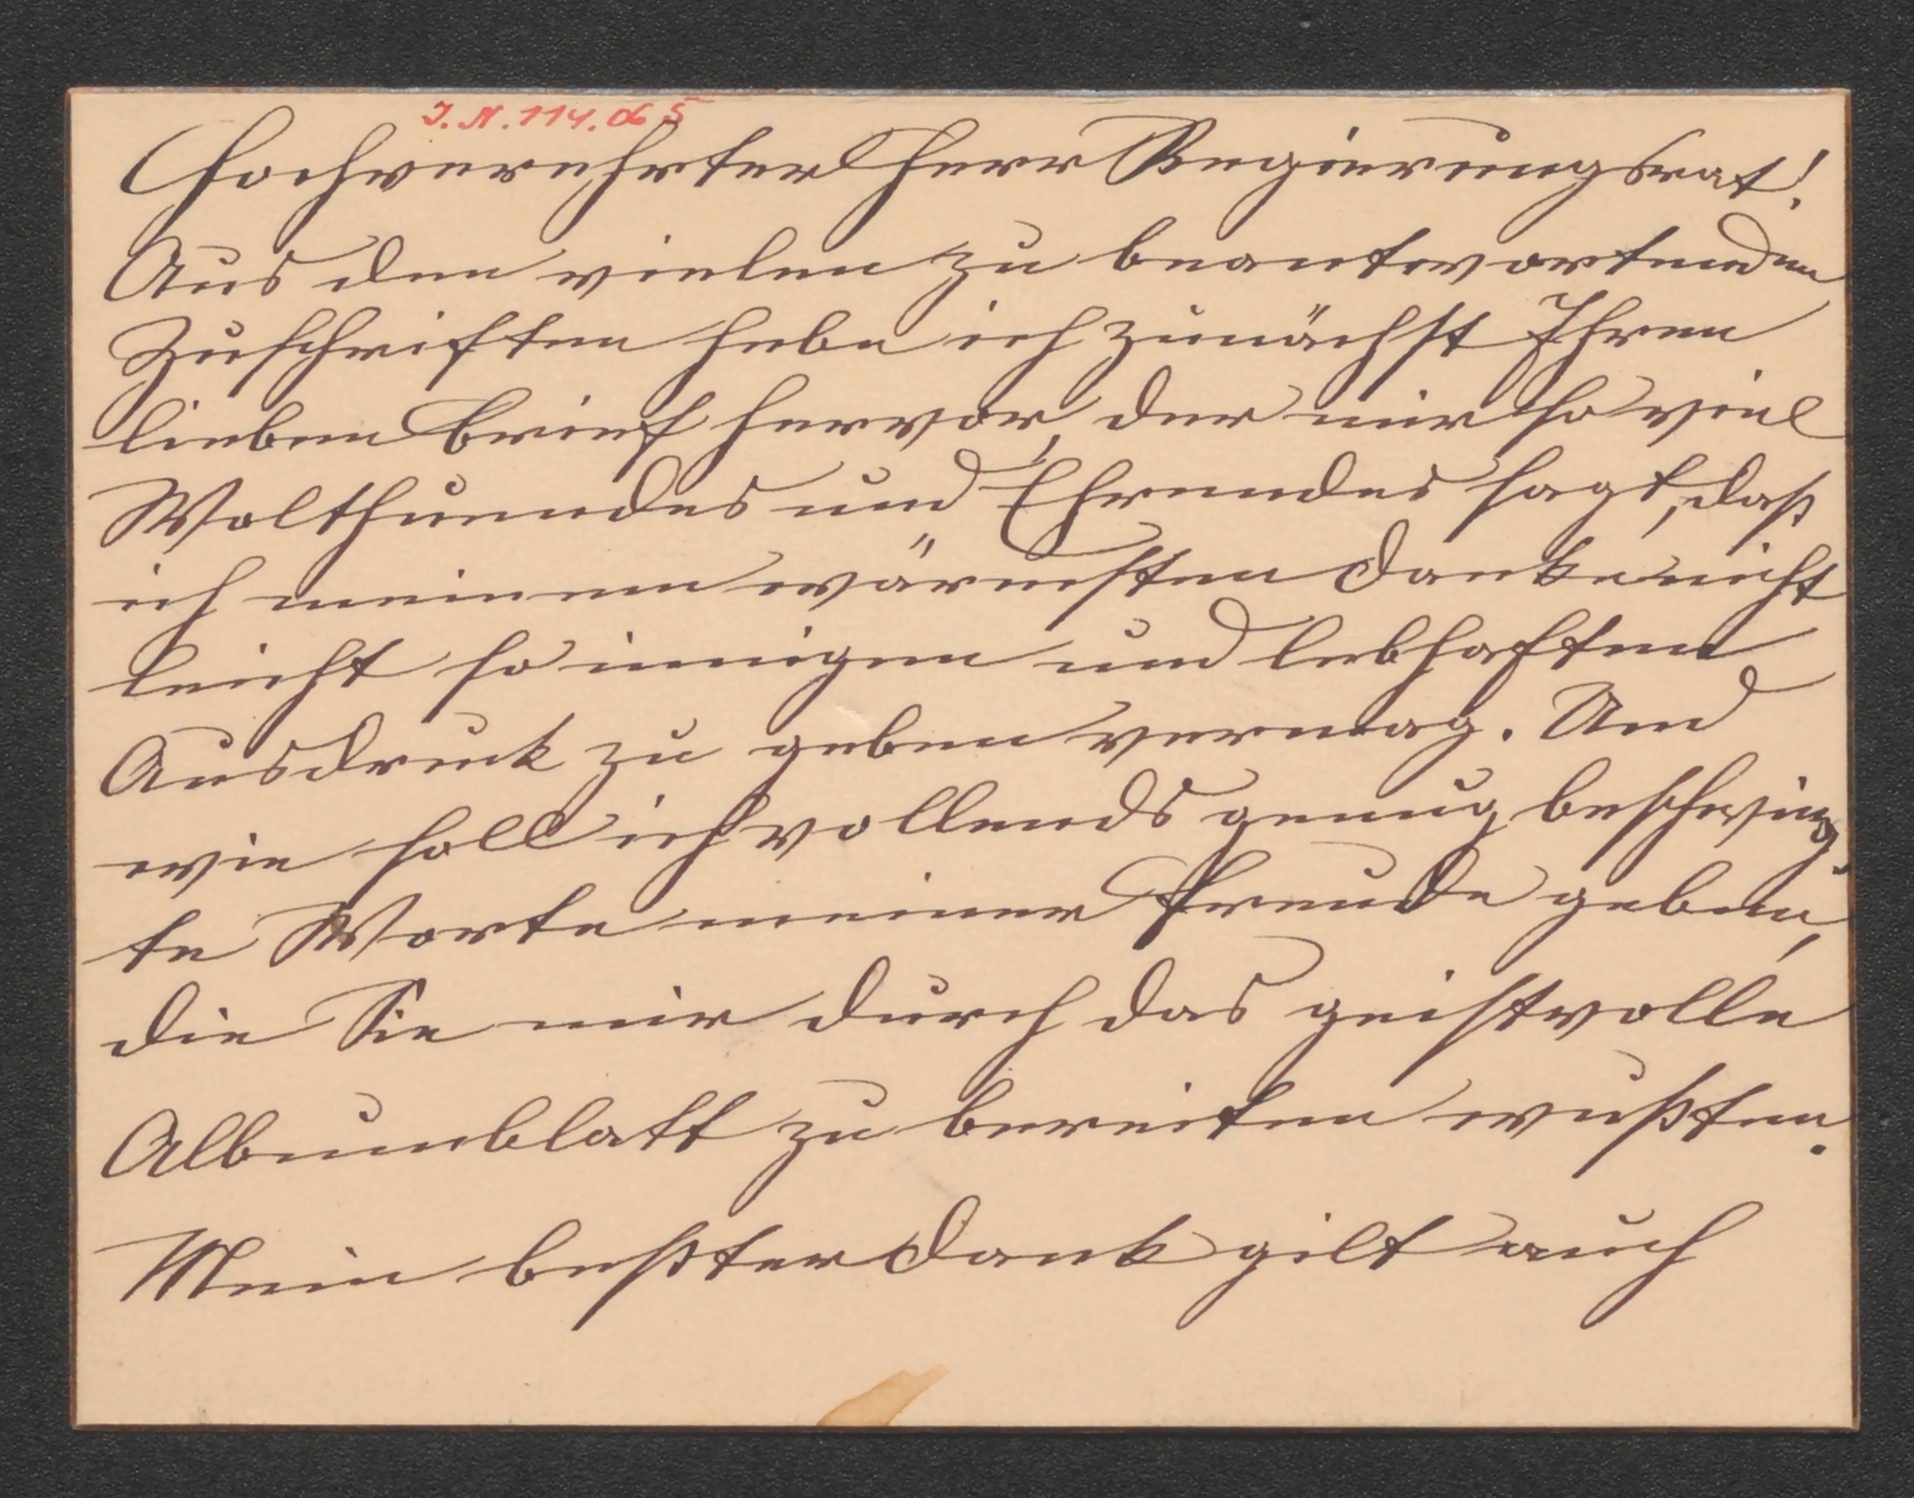 I. N. 114.065
Hochverehrter Herr Regierungsrat!
Aus den vielen zu beantwortenden
Zuschriften hebe ich zunächst Ihren
lieben Brief hervor, der mir so viel
Wolthuendes und Ehrendes sagt, daß
ich meinem wärmsten Danke nicht
leicht so innigen und lebhaften
Ausdruck zu geben vermag. Und
wie soll ich vollends genug beschwing-
te Worte meiner Freude geben,
die Sie mir durch das geistvolle
Albumblatt zu bereiten wußten.
Mein beßter Dank gilt auch